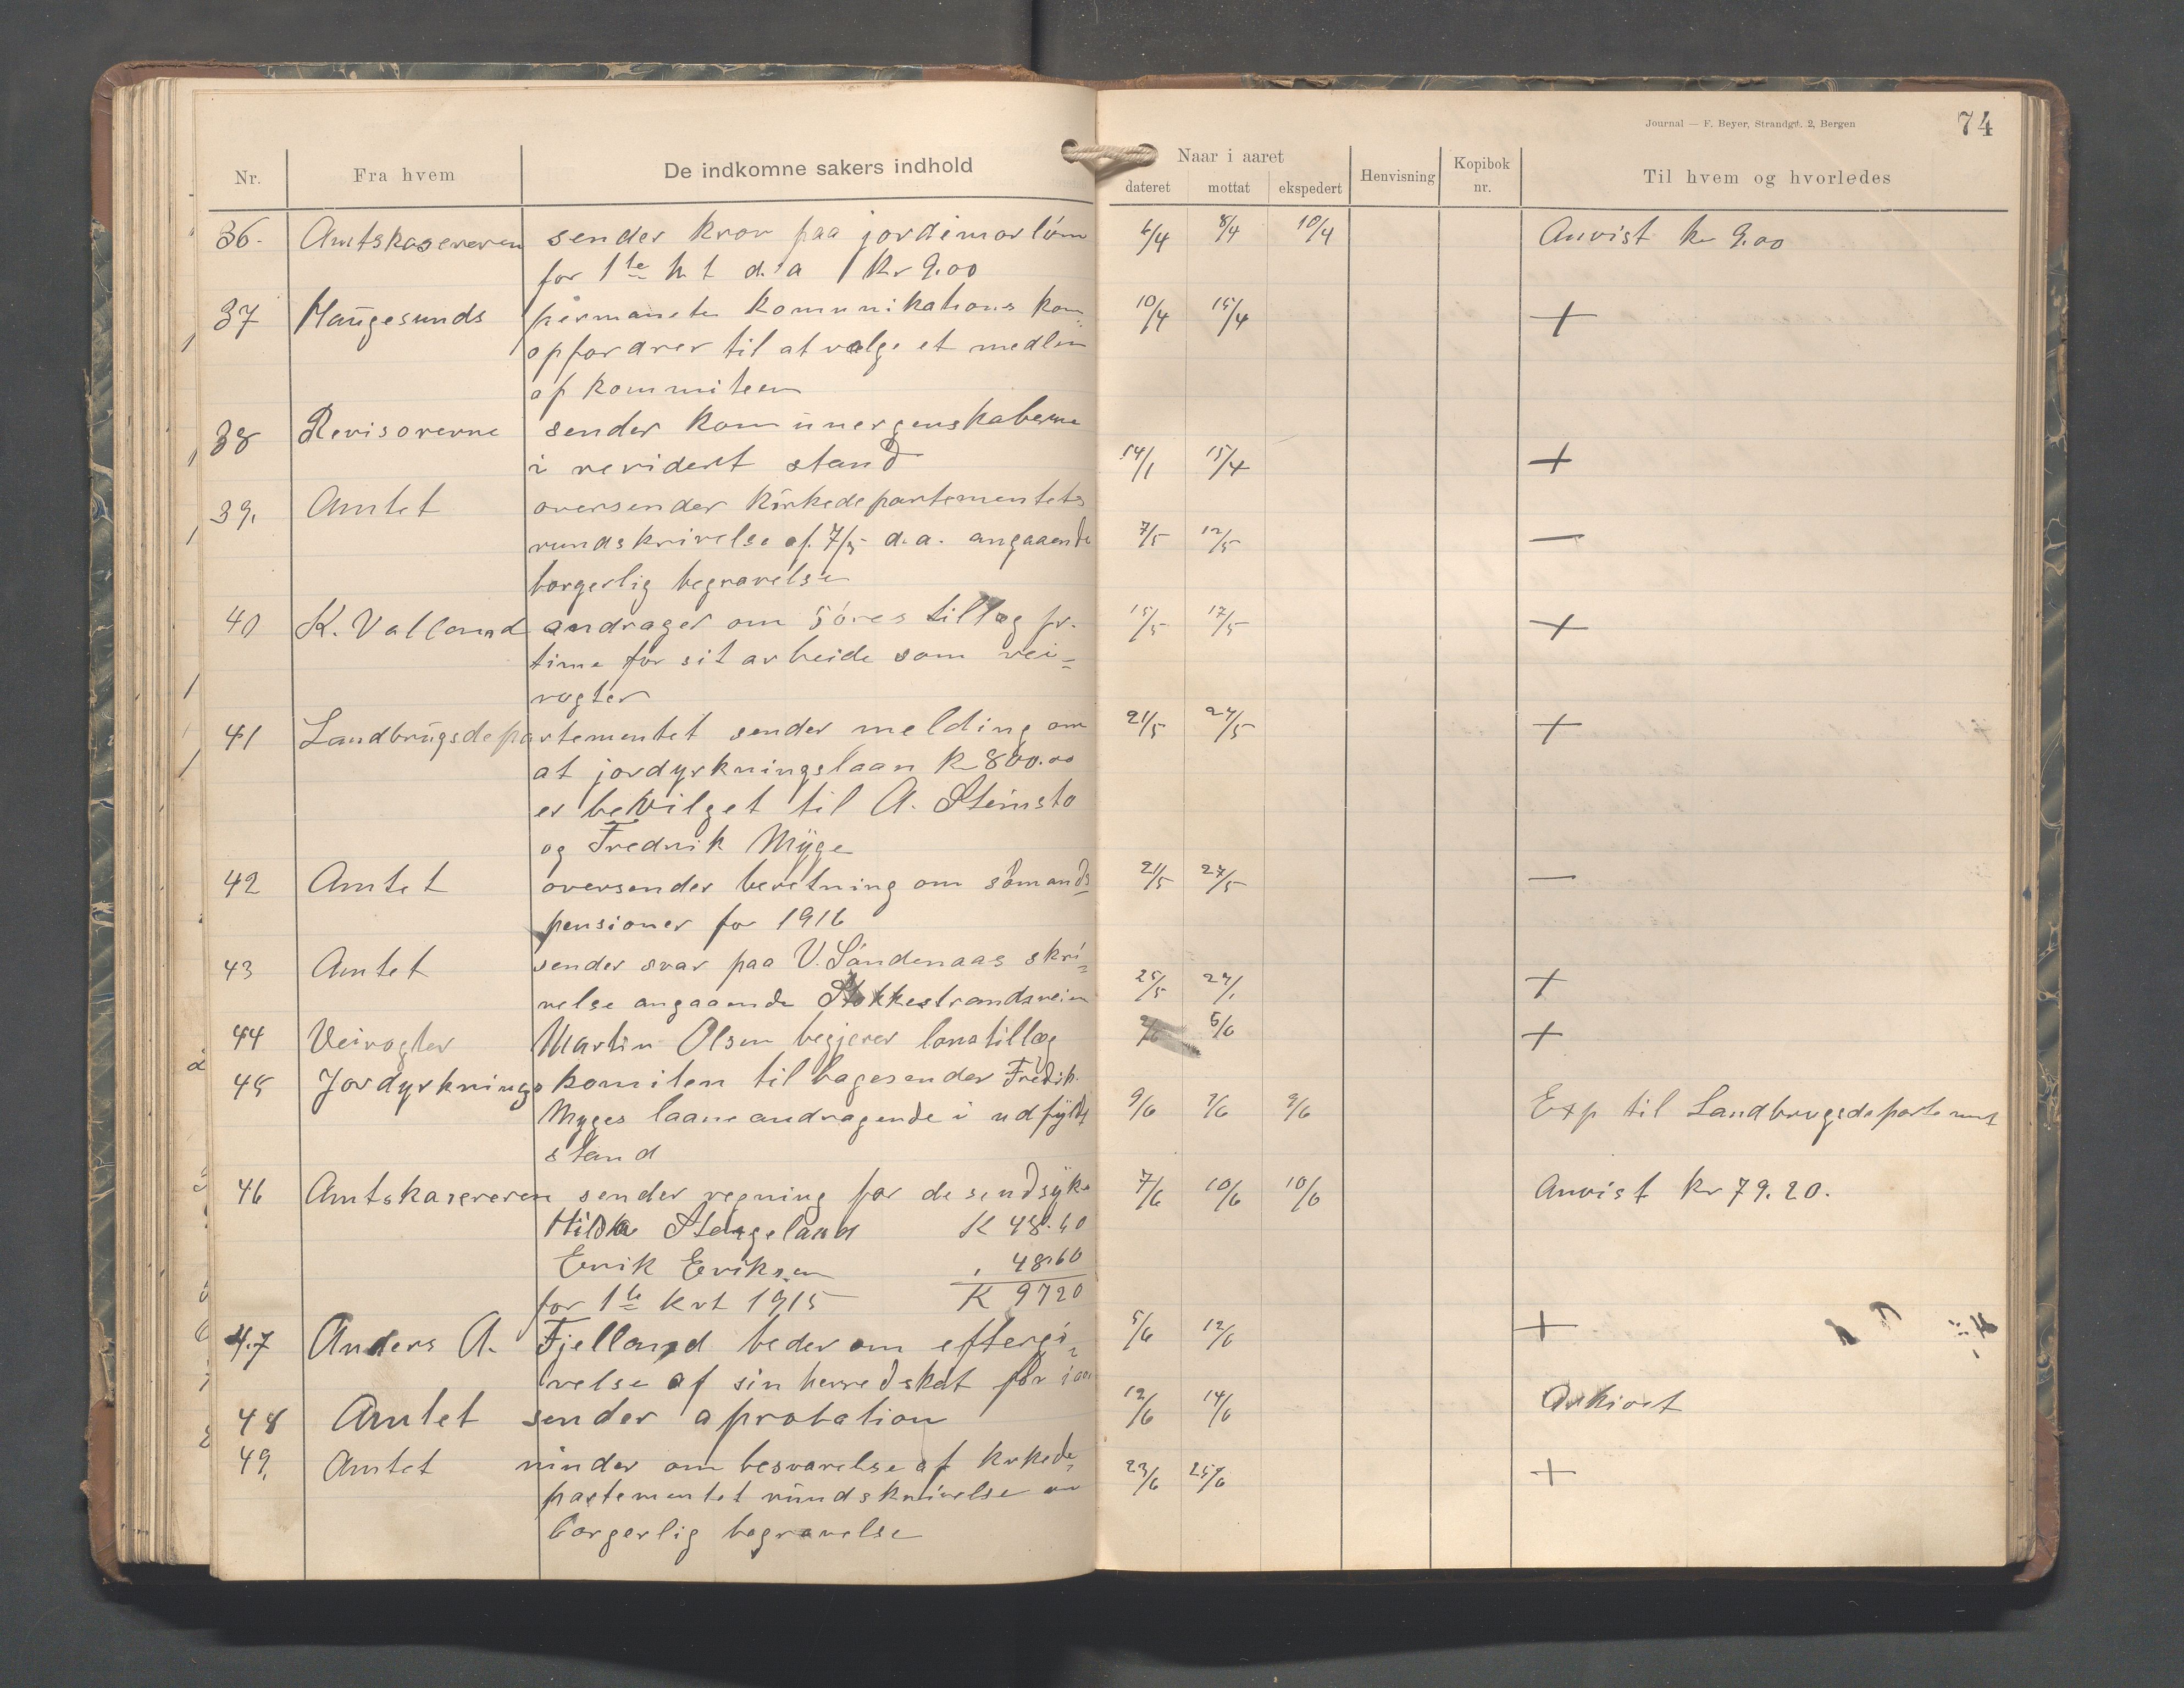 Journal — F. Beyer, Strandgt. 2, Bergen
74
Nr. Fra hvem De indkomne sakers indhold Naar i aaret Henvisning Kopibok nr. Til hvem og hvorledes
dateret mottat ekspedert
36. Amtskasereren sender krav paa jordemorlön 6/4 8/4 10/4 Anvist kr 9.00
for 1te h t d. a kr 9.00
37 Haugesunds permanete komunikations kom= 10/4 15/4 +
opfordrer til at vælge et medlem
af kommiteen
38 Revisorerne sender komunergenskaberne
i revidert stand 14/1 15/4 +
39. Amtet oversender Kirkedepartementets
rundskrivelse af 7/5 d.a. angaaende 7/5 12/5 —
borgerlig begravelse
40 K. Valland andrager om 5 öres tillæg pr. 15/5 17/5 +
time for sit arbeide som vei=
vogter
41 Landbrugsdepartementet sender melding om 21/5 24/5 +
at jordyrkningslaan kr 800.00
er bevilget til A. Steinsto
og Fredrik Myge
42 Amtet oversender beretning om sömands 21/5 27/5 —
pensioner for 1916
43 Amtet sender svar paa V. Sandenaas skri=
velse angaaende Stokkestrandsveien 25/5 +
44 Veivogter Martin Olsen begjerer lönstillæg 5/6 +
45 Jordyrknings komiteen tilbagesender Fredik.
Myges laaneandragende i udfyldt 9/6 9/6 Exp til Landbrugsdepartement
stand
46 Amtskasereren sender regning for de sindsyke 7/6 10/6 10/6 Anvist kr 79.20.
Hilda Stangeland K 48.60
Eerik Eeriksen , 48.60
for 1te kvt 1915 K 97 20
47 Anders A. Fjelland beder om eftergi= 5/6 12/6 +
velse af sin herredskat for iaar
48 Amtet sender aprobation 12/6 14/6 Arkivet
49. Amtet minder om besvarelse af kirkede=
partementet rundskrivelse om 23/6 25/6 +
borgerlig begravelse